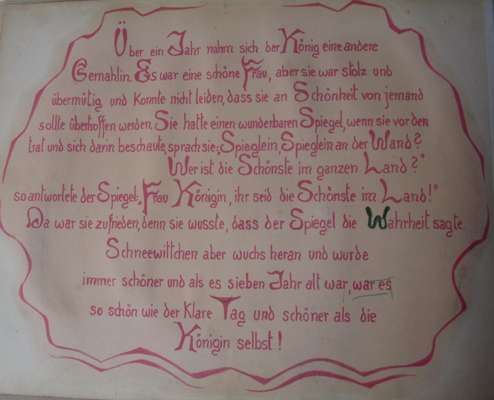 Über ein Jahr nahm sich der König eine andere
Gemahlin. Es war eine schöne Frau, aber sie war stolz und
übermütig und konnte nicht leiden, dass sie an Schönheit von jemand
sollte überhoffen werden. Sie hatte einen wunderbaren Spiegel, wenn sie vor den
trat und sich darin beschaute, sprach sie: „Spieglein, Spieglein an der Wand?
Wer ist die Schönste im ganzen Land?"
so antwortete der Spiegel: „Frau Königin, ihr seid die Schönste im Land!"
Da war sie zufrieden, denn sie wusste, dass der Spiegel die Wahrheit sagte
Schneewittchen aber wuchs heran und wurde
immer schöner und als es sieben Jahr alt war, war es
so schön wie der Klare Tag und schöner als die
Königin selbst!